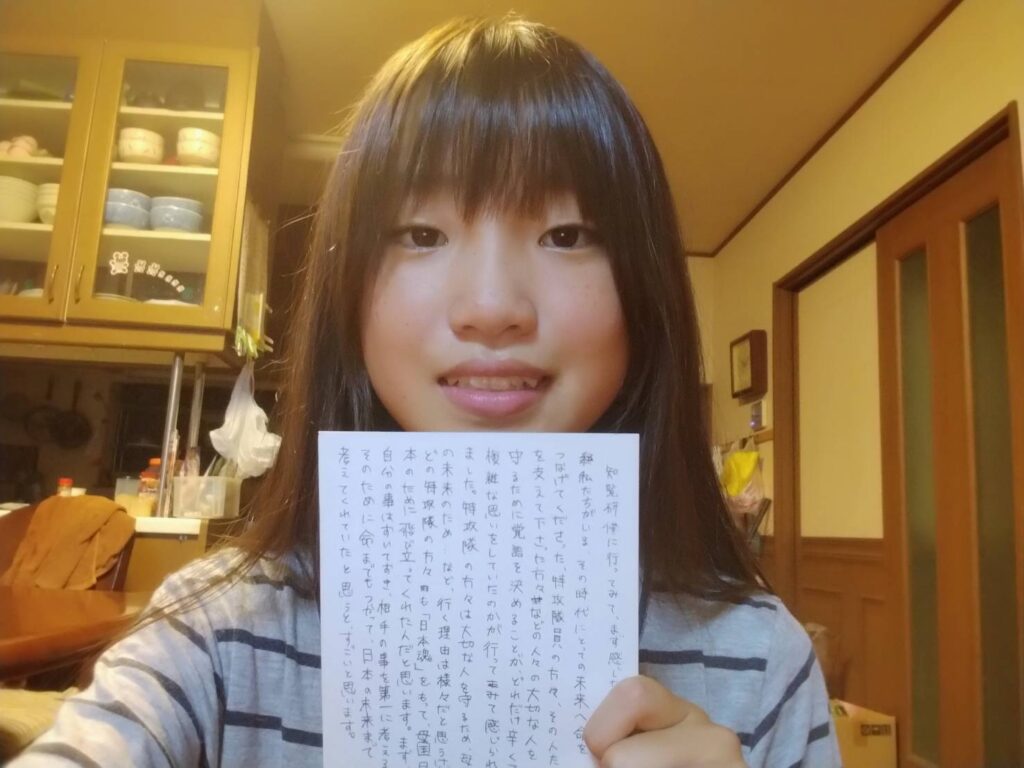 知覧研修に行ってみて、まず感じ
私たちがいる、その時代にとっての未来へ命を
つなげてくださった、特攻隊員の方々、その人た
を支えて下さった方々などの人々の大切な人を
守るために覚悟を決めることが、どれだけ辛くて
複雑な思いをしていたのかが行ってみて感じられ
ました。特攻隊の方々は大切な人を守るため、母
の未来のため…など、行く理由は様々だと思うけ
どの特攻隊の方々も「日本魂」をもって、愛国日
本のために飛び立ってくれた人だと思います。まず、
自分の事はおいておき、相手の事を第一に考える
そのために命までもつかって、日本の未来まで
考えてくれていたと思うと、すごいと思います。